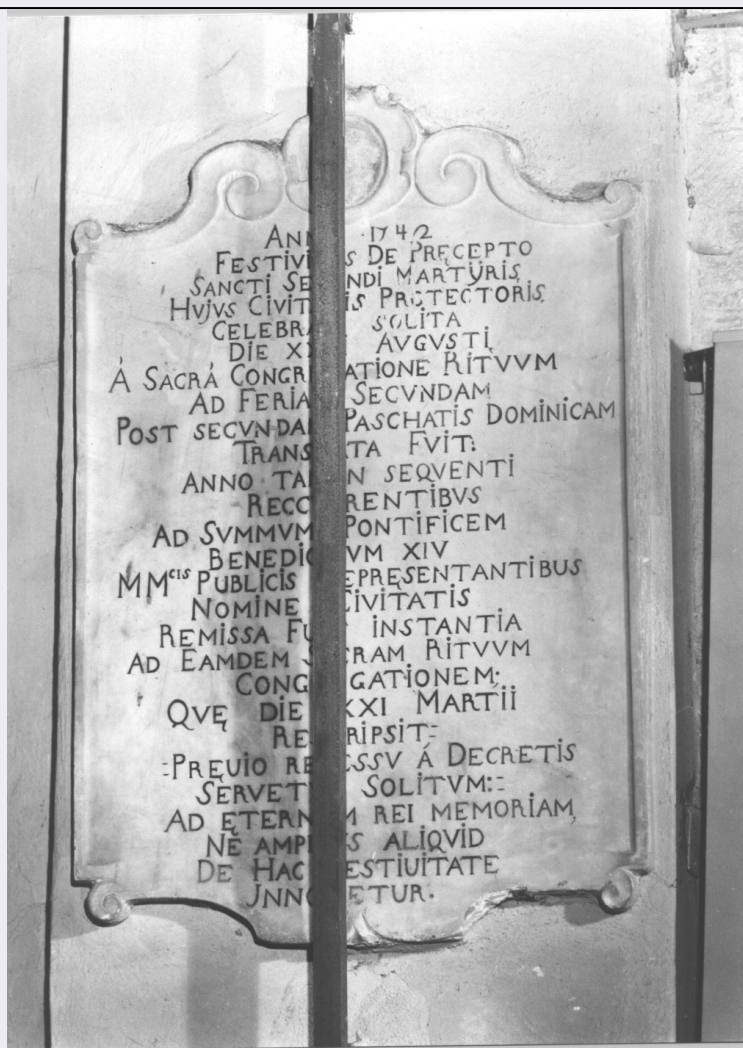 ANNO 1742
FESTIVITAS DE PRĘCEPTO
SANCTI SECUNDI MARTYRIS
HUJUS CIVITATIS PROTECTORIS
CELEBRARI SOLITA
DIE AVGVSTI
Á SACRÁ CONGREGATIONE RITVVM
AD FERIAM SECVNDAM
POST SECVNDAM PASCHATIS DOMINICAM
TRANSLATA FVIT:
ANNO TAMEN SEQVENTI
RECCURRENTIBVS
AD SVMMVM PONTIFICEM
BENEDICTVM XIV
MM^CIS PUBLICIS REPRĘSENTANTIBUS
NOMINE CIVITATIS
REMISSA FUIT INSTANTIA
AD EAMDEM SACRAM RITVVM
CONGREGATIONEM;
QVĘ DIE MARTII
RESCRIPSIT=
=PRĘUIO RECESSV Á DECRETIS
SERVETUR SOLITVM::
AD ĘTERNAM REI MEMORIAM,
NE AMPLIUS ALIQVID
DE HAC FESTIUITATE
JNNOVETUR.